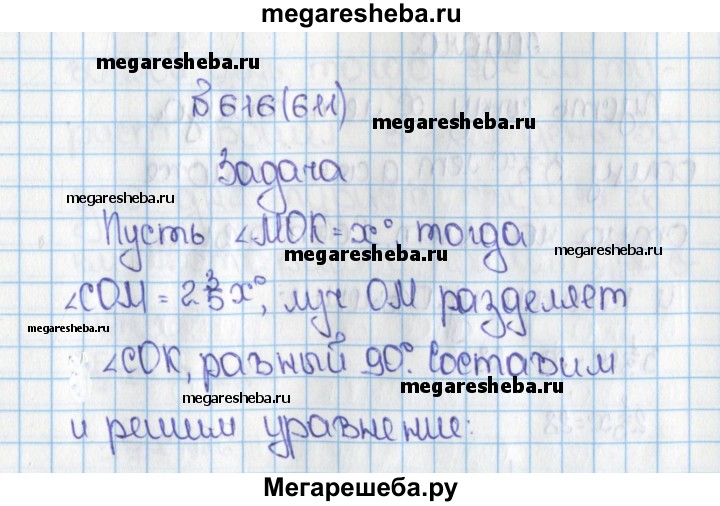 megaresheba.ru
megaresheba.ru
В 616(611)
megaresheba.ru
Задача
megaresheba.ru
Пусть ∠МОК = x° тогда
megaresheba.ru
megaresheba.ru
∠СОМ = 2 2/5 x°, луч ОМ разделяет
megaresheba.ru
∠СОК, равный 90°. Составим
megaresheba.ru
megaresheba.ru
и решим уравнение:
megaresheba.ru
Мегарешеба.ру